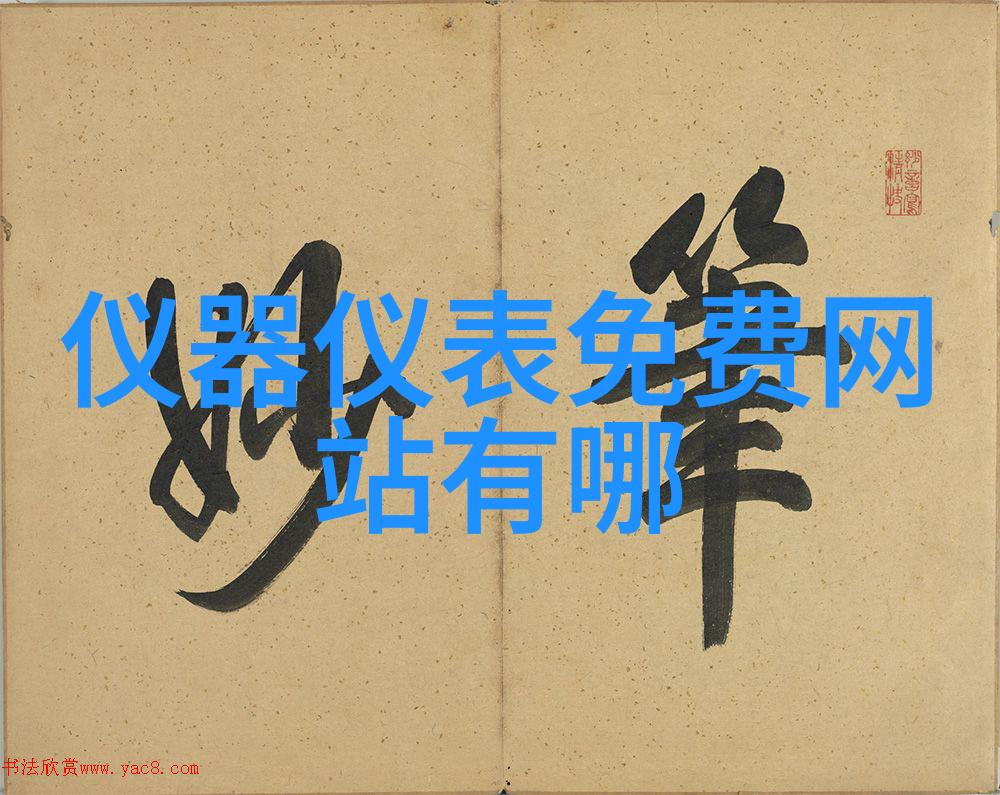 筆妙
仪器仪表免费网
站有哪
书法欣赏www.yac8.com